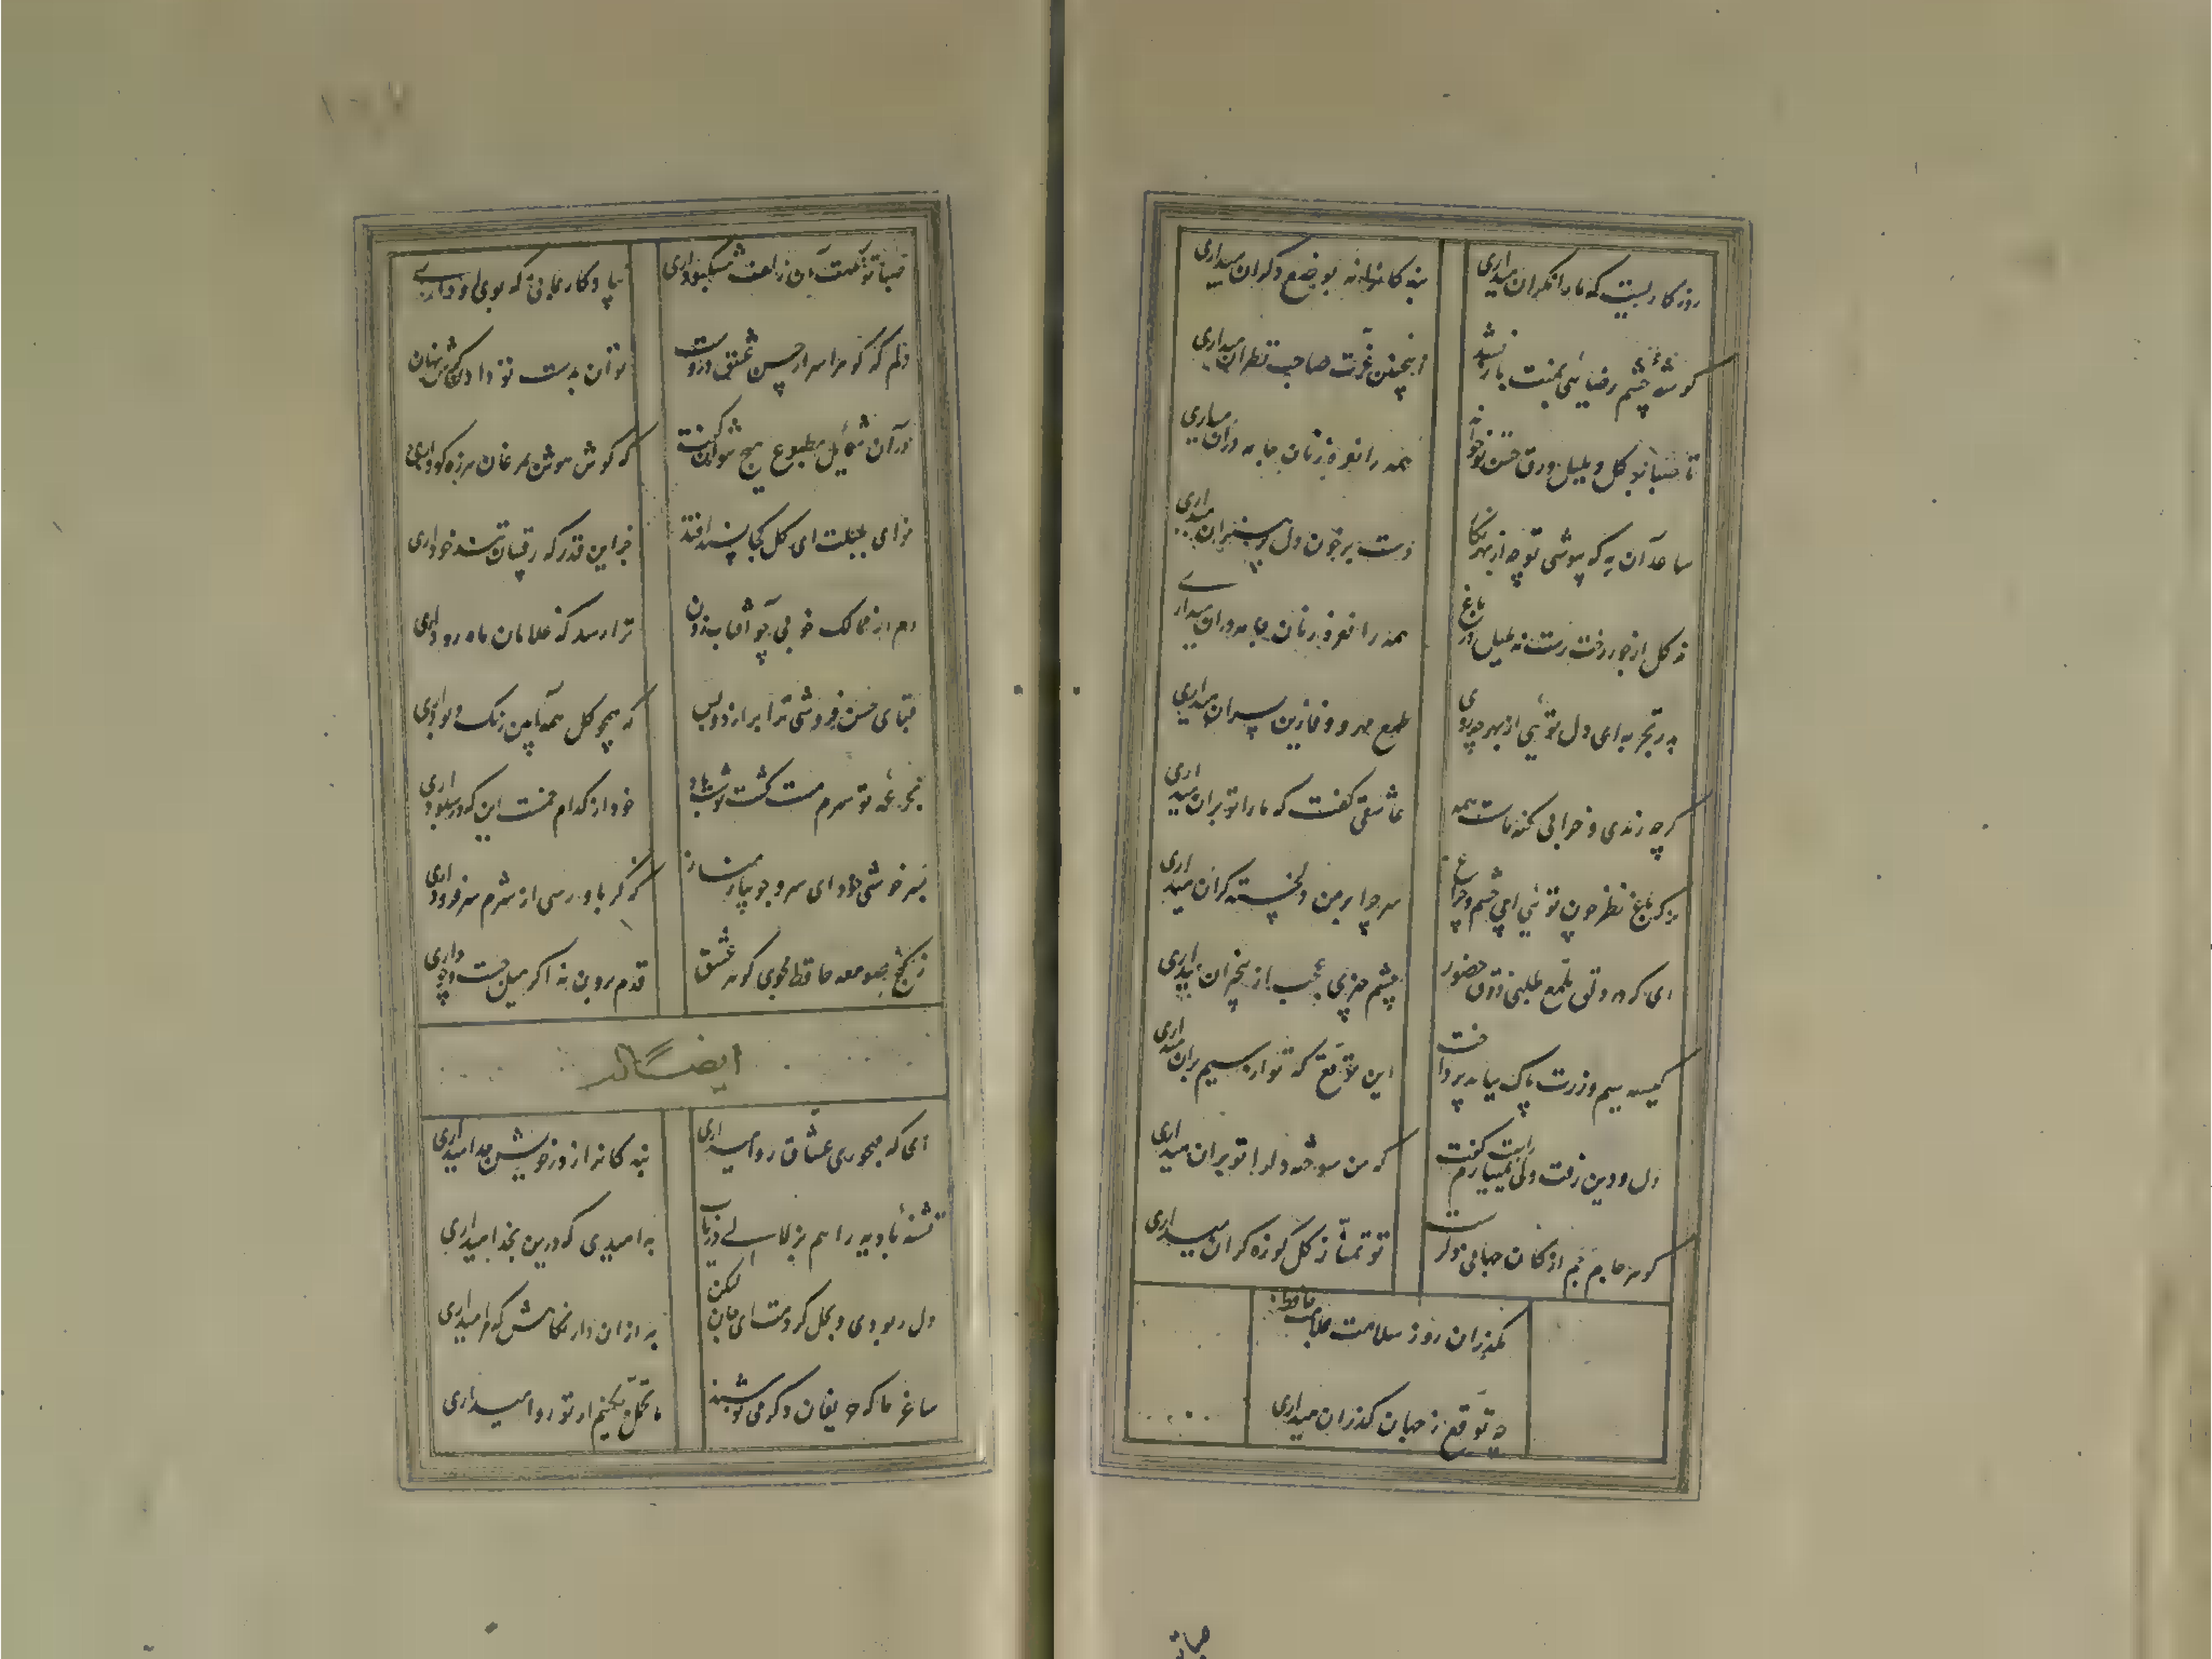 روزگاریست که ما را نگران میداری
بندگانرا نه بوضع دگران میداری
گوشهٔ چشم رضائی بمنت باز نشد
اینچنین عزت صاحب نظران میداری
تا صبا بر گل و بلبل ورق حسن تو خواند
همه را نعره زنان جامه دران میداری
ساعد آن به که بپوشی تو چو از بهر نگار
دست بر خون دل پر هنران میداری
نه گل از جور رخت رست نه بلبل در باغ
همه را نعره زنان جامه دران میداری
پدر تجربه ای دل توئی از بهر چه روی
طمع مهر و وفا زین پسران میداری
گرچه رندی و خرابی گنه ماست همه
عاشقی گفت که ما را تو بران میداری
ای که باغ نظر چون توئی ای چشم و چراغ
سر چرا بر من دلخسته گران میداری
ای که در دلق ملمع طلبی ذوق حضور
چشم سری عجب از بیخبران میداری
کیسه سیم و زرت پاک بباید پرداخت
این توقع که تو از سیم بران میداری
دل و دین رفت ولی نمییارم راست گفت
که من سوخته دل را تو بران میداری
گوهر جام جم از کان جهانی دگرست
تو تمنا ز گل کوزه گران میداری
مگذران روز سلامت بملامت حافظ
چه توقع ز جهان گذران میداری
صبا تو
صبا تو نکهت آن زلف مشکبو داری
بیادگار بمانی که بوی او داری
دلم که گوهر اسرار حسن و عشق دروست
توان بدست تو دادن گرش نهان داری
در آن شمایل مطبوع هیچ نتوان گفت
که گوش هوش بمرغان هرزه گو داری
نوای بلبلت ای گل کجا پسند افتد
جز این قدر که رقیبان تند خو داری
دم از ممالک خوبی چو آفتاب زدن
ترا رسد که غلامان ماه رو داری
قبای حسن فروشی ترا برازد و بس
که همچو گل همه آیین رنگ و بو داری
بجرعهٔ تو سرم مست گشت نوشت باد
خود از کدام خمست این که در سبو داری
بسرخوشی خود ای سرو جویبار مناز
که گر باو رسی از شرم سر فرو داری
ز کنج صومعه حافظ مجوی گوهر عشق
قدم برون نه اگر میل جست و جو داری
ایضاً له
ای که مهجوری عشاق روا میداری
بندگانرا ز در خویش جدا میداری
تشنهٔ بادیه را هم بزلالی دریاب
به امیدی که درین ره بخدا میداری
دل ربودی و بحل کردمت ای جان لیکن
به ازان دار نگاهش که مرا میداری
ساغر ما که حریفان دگر می نوشند
ما تحمل نکنیم ار تو روا میداری